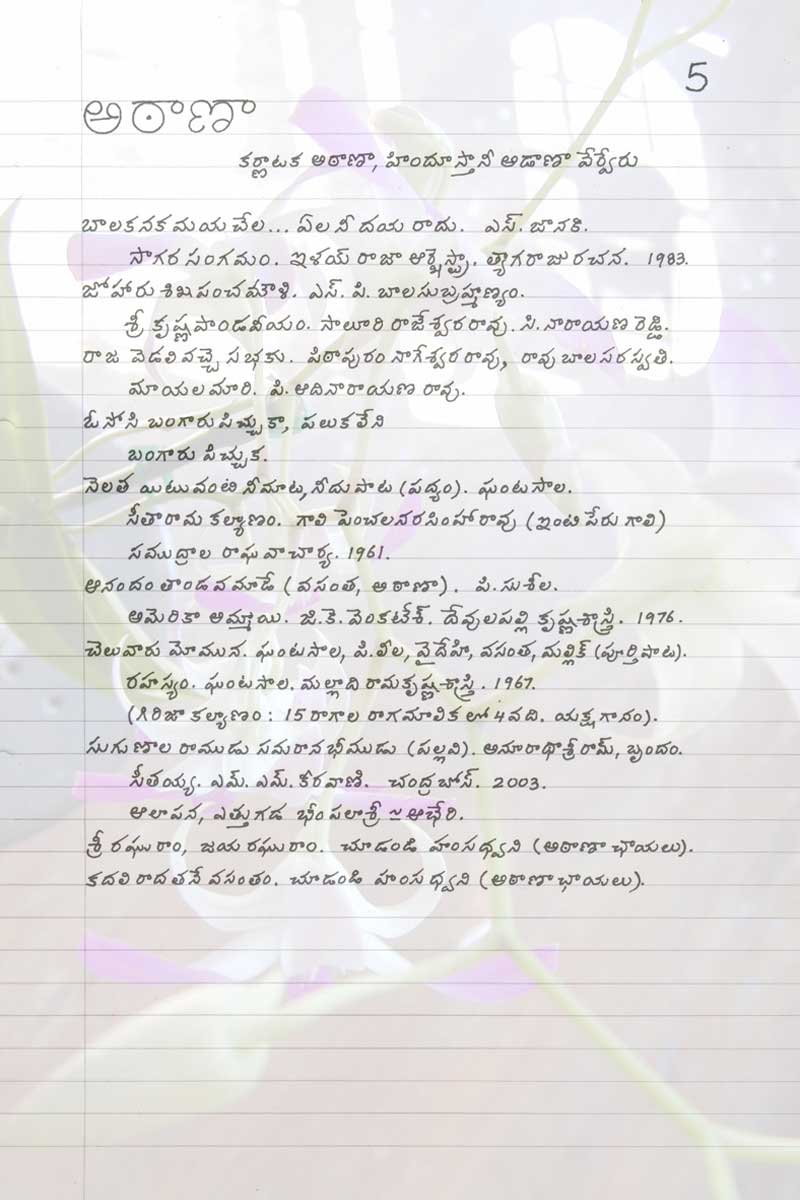 5
అఠాణా
కర్ణాటక అఠాణా, హిందూస్తానీ అడాణా వేర్వేరు
బాలకనకమయ చేల... ఏల నీ దయ రాదు. ఎస్. జానకి.
సాగర సంగమం. ఇళయ్ రాజా ఆర్కెస్ట్రా. త్యాగరాజు రచన. 1983.
జోహారు శిఖిపింఛమౌళి. ఎస్. పి. బాలసుబ్రహ్మణ్యం.
శ్రీ కృష్ణపాండవీయం. సాలూరి రాజేశ్వరరావు. సి. నారాయణ రెడ్డి.
రాజ వెడలి వచ్చె సభకు. పిఠాపురం నాగేశ్వరరావు, రావు బాలసరస్వతి.
మాయలమారి. పి. ఆదినారాయణ రావు.
ఓసోసి బంగారుపిచ్చుకా, పలుకలేని
బంగారు పిచ్చుక.
నెలత యిటువంటి నీమాట, నీదుపాట (పద్యం). ఘంటసాల.
సీతారామ కల్యాణం. గాలి పెంచలనరసింహారావు (ఇంటి పేరు గాలి)
సముద్రాల రాఘవాచార్య. 1961.
ఆనందతాండవమాడే (వసంత, అఠాణా). పి. సుశీల.
అమెరికా అమ్మాయి. జి. కె. వెంకటేశ్. దేవులపల్లి కృష్ణశాస్త్రి. 1976.
చెలువారు మోమున. ఘంటసాల, పి. లీల, వైదేహి, వసంత, మల్లిక్ (పూర్తిపాట).
రహస్యం. ఘంటసాల. మల్లాది రామకృష్ణశాస్త్రి. 1967.
(గిరిజా కల్యాణం : 15 రాగాల రాగమాలికలో 4వది. యక్షగానం).
సుగుణాల రాముడు సమరానభీముడు (పల్లవి). అనూరాధాశ్రీరామ్, బృందం.
సీతయ్య. ఎమ్. ఎమ్. కీరవాణి. చంద్రబోస్. 2003.
ఆలాపన, ఎత్తుగడ భీంపలాశ్రీ ~ ఆభేరి.
శ్రీ రఘురాం, జయ రఘురాం. చూడండి హంసధ్వని (అఠాణా ఛాయలు).
కదలి రాదతనే వసంతం. చూడండి హంసధ్వని (అఠాణా ఛాయలు).